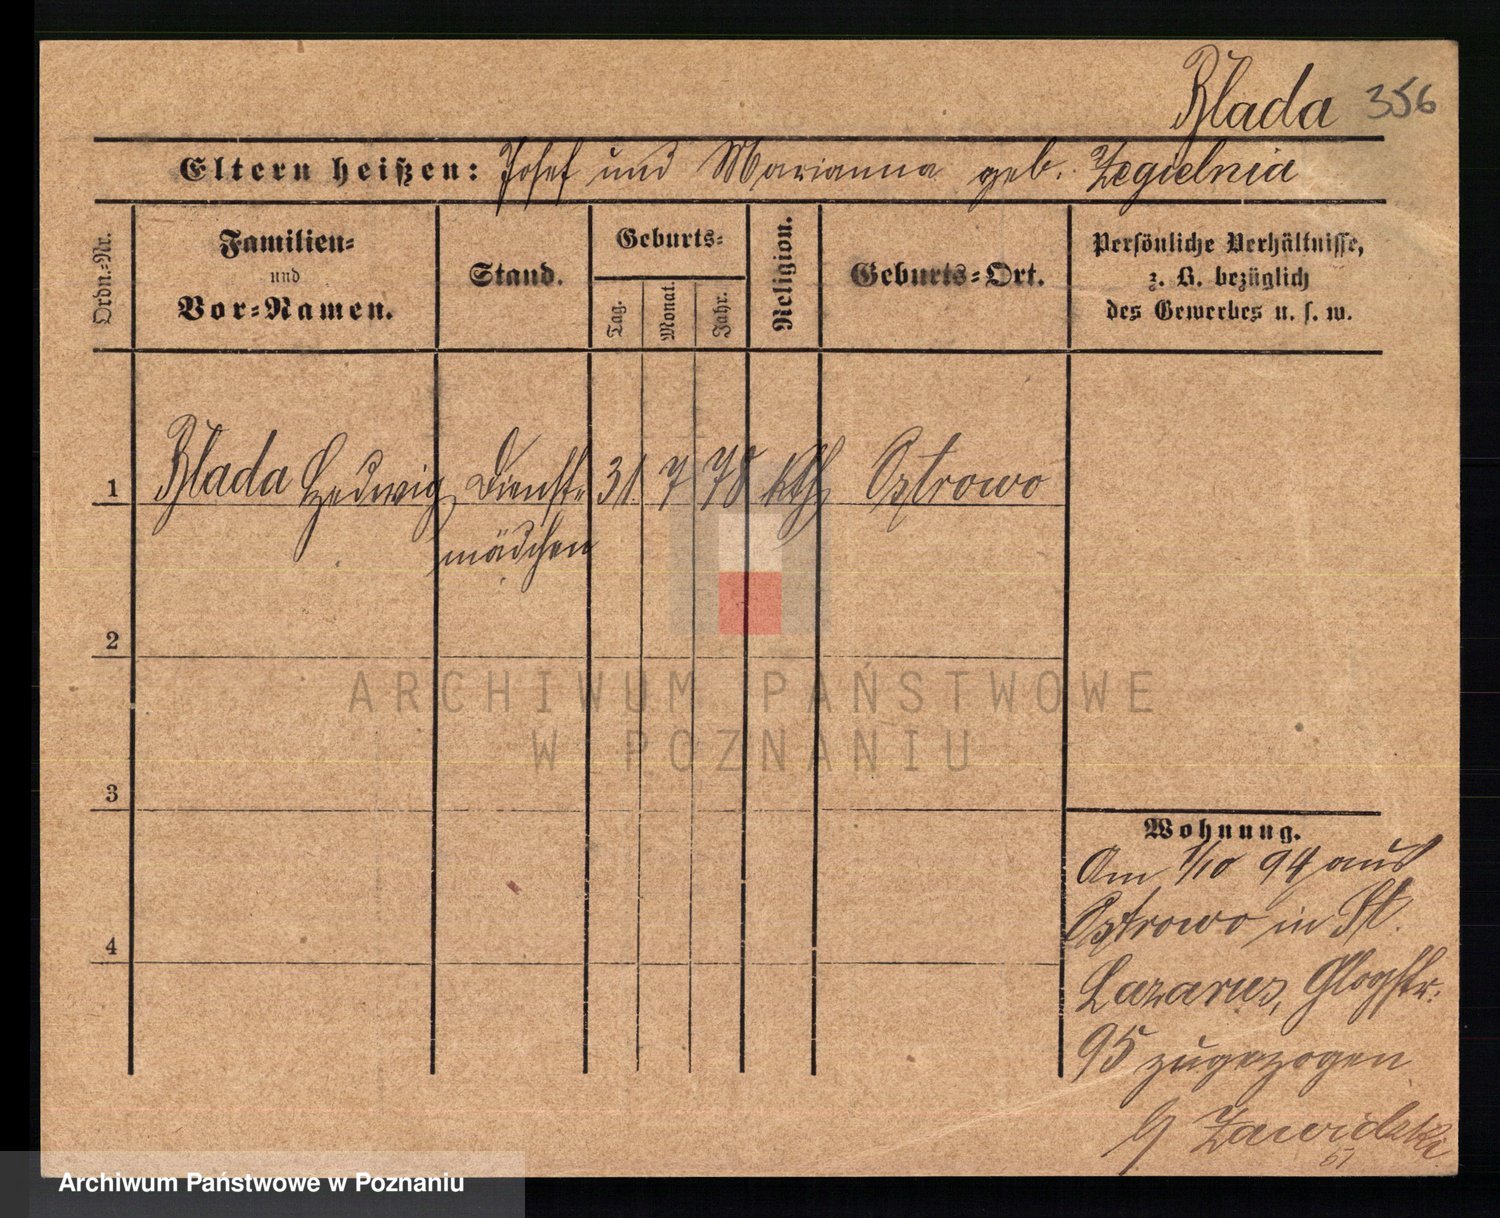 Blada 356
Eltern heißen: Josef und Marianna geb. Zegielnia
Ordn.-Nr.
Familien-
und
Vor-Namen.
Stand.
Geburts-
Tag.
Monat.
Jahr.
Religion.
Geburts-Ort.
Persönliche Verhältnisse,
z. B. bezüglich
des Gewerbes u. s. w.
1 Blada Hedwig Dienst- 31. 7 78 kth Ostrowo
mädchen
2
3
4
Wohnung.
Am 1/10 94 aus
Ostrowo in St.
Lazarus, Glogstr.
95 zugezogen
Zawidzki
ARCHIWUM PAŃSTWOWE
W POZNANIU
Archiwum Państwowe w Poznaniu